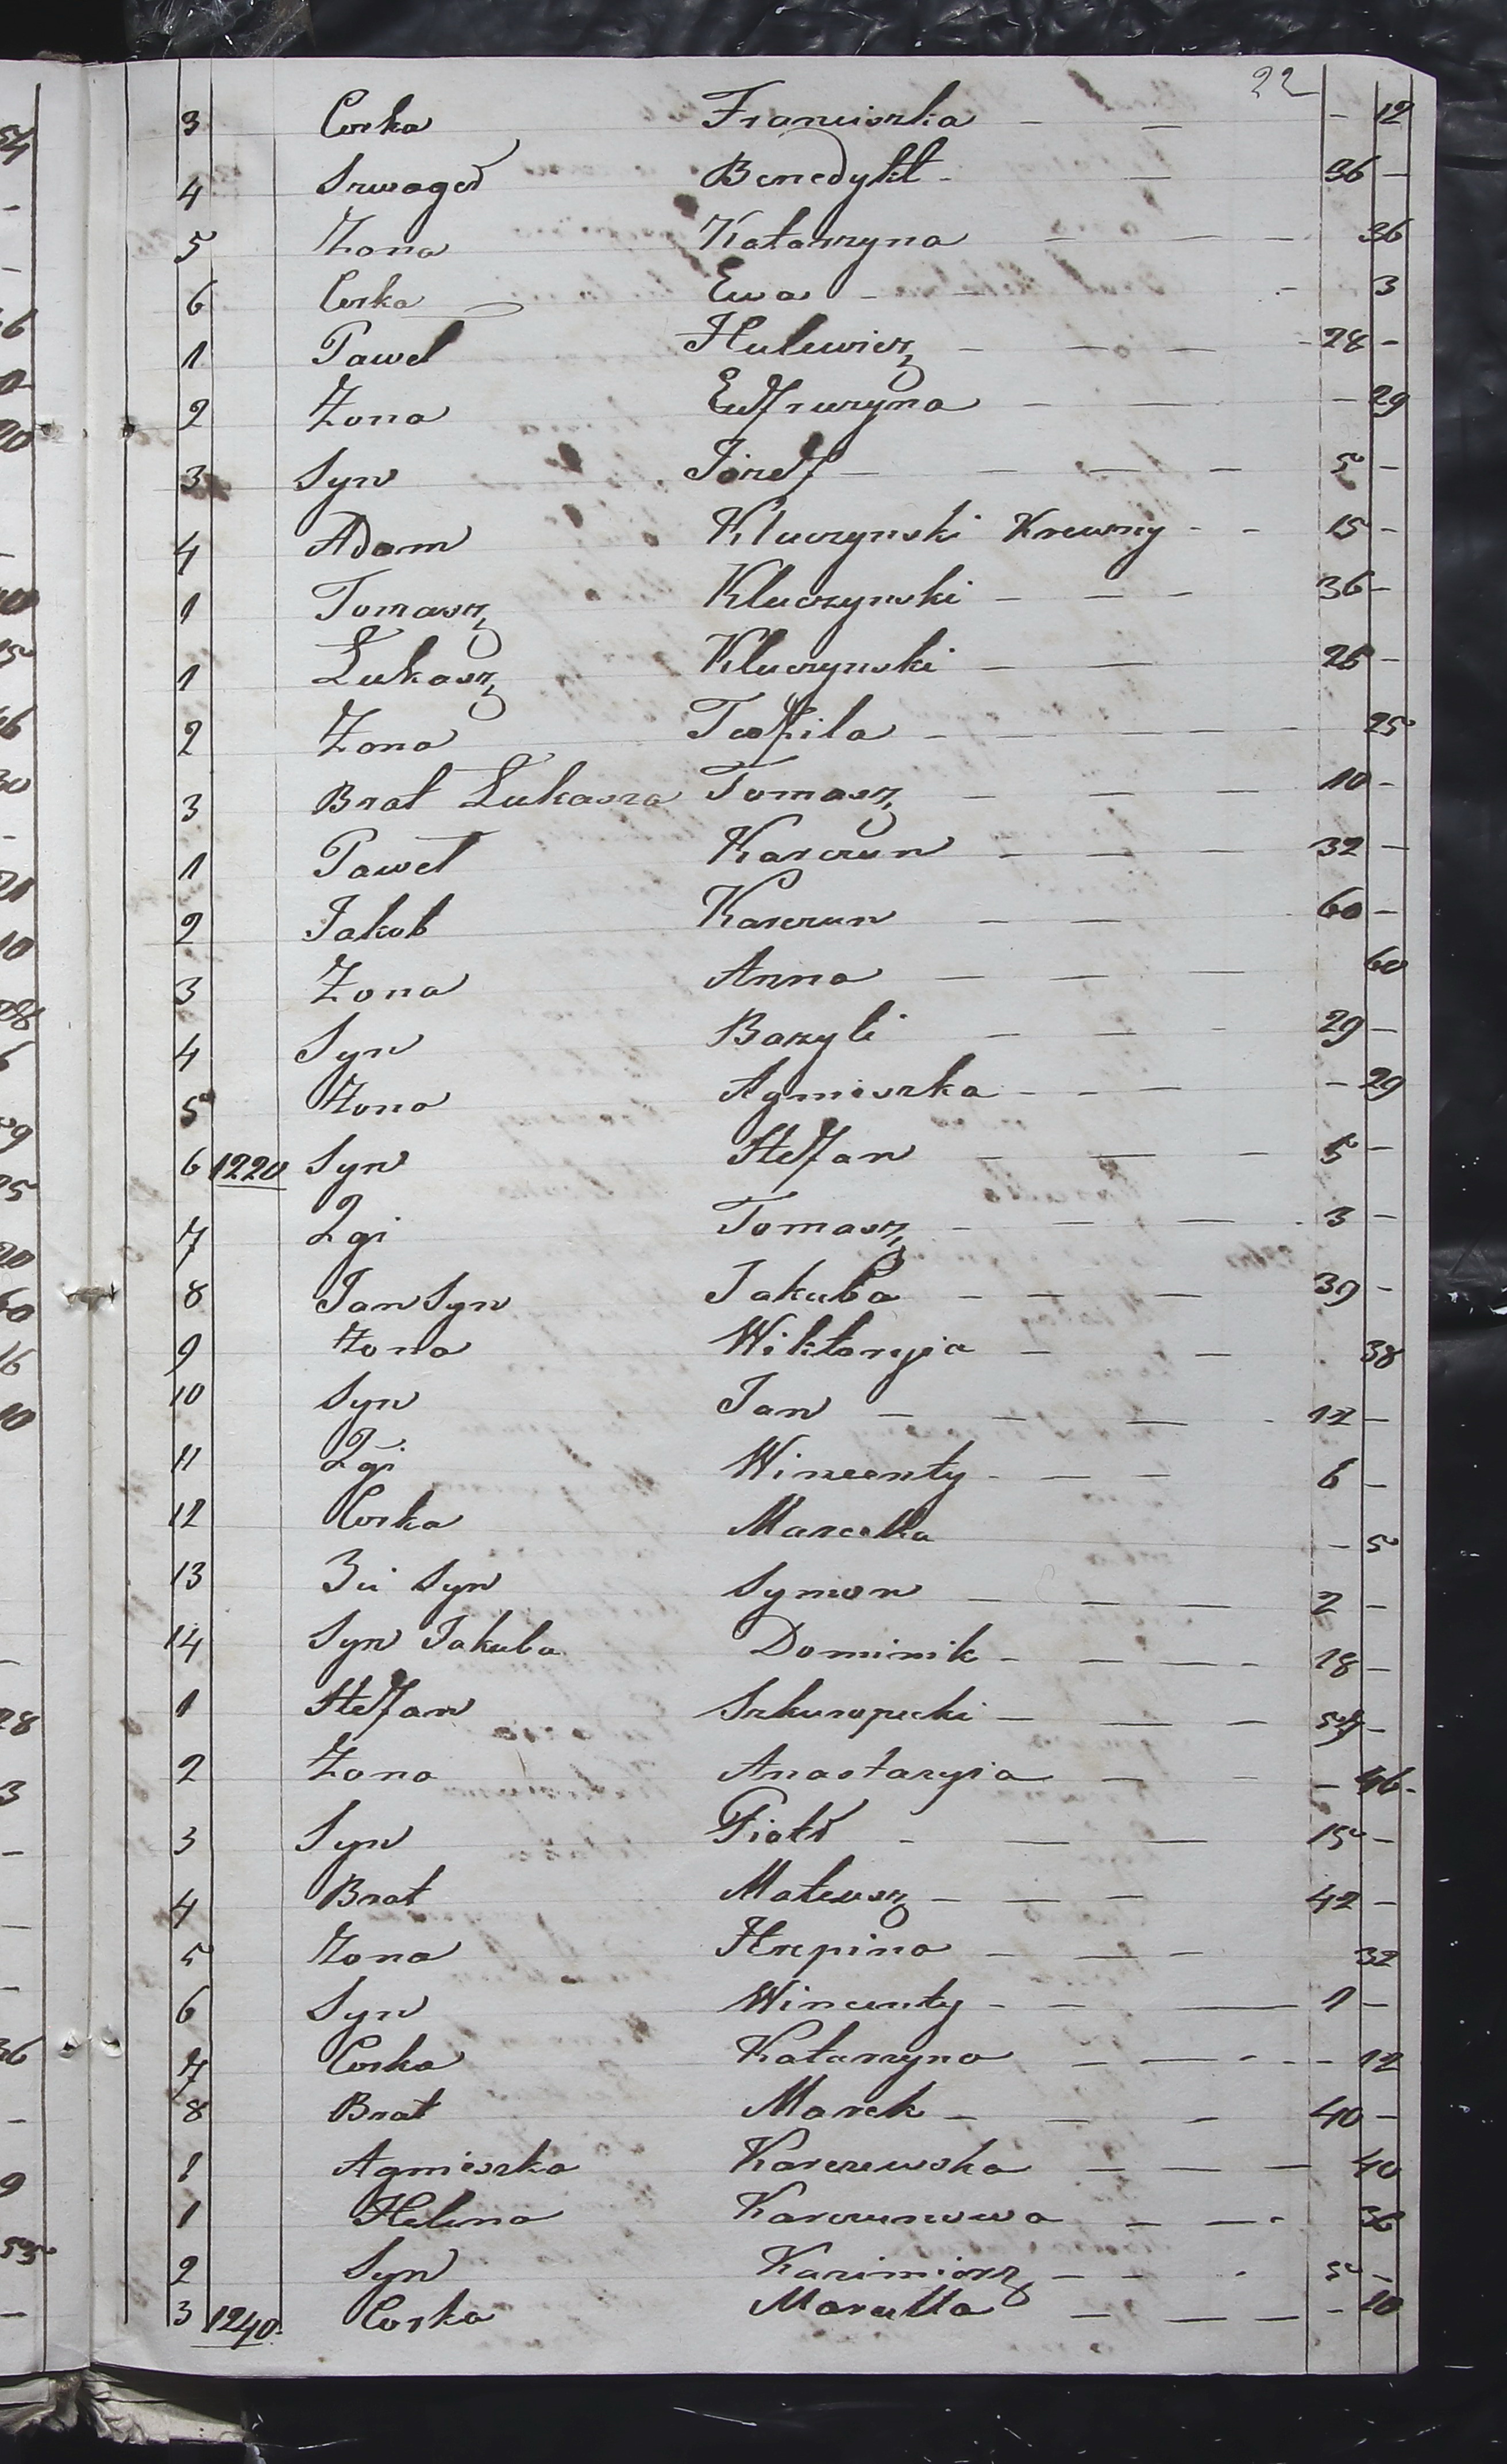 22
3 Corka Franciszka - — - 12
4 Szwager Benedykt - — 36 —
5 Zona Katarzyna - — — - 36
6 Corka Ewa - - 3
1 Pawel Hulewicz - — — - 28 -
2 Zona Eufruzyna - — - - 29
3 Syn Józef — - — - 5 -
4 Adam Kluczynski Krewny - - 15 -
1 Tomasz Kluczynski - - - 36 -
1 Łukasz Kluczynski - — 26 -
2 Zona Teofila - - - - 25
3 Brat Łukasza Tomasz - — - 10 -
1 Paweł Karczun - - - 32 —
2 Jakob Karczun - — 60 -
3 Zona Anna — — - 60
4 Syn Bazyli — — - 29 —
5 Zona Agnieszka - - — - 29
6 1220 Syn Stefan - — - 5 -
7 2gi Tomasz - - — - 3 -
8 Jan Syn Jakuba - - - - 39 -
9 Zona Wiktoryia - - 38
10 Syn Jan - - — - 12 —
11 2gi Wincenty - - - 6 -
12 Corka Marcella - 5
13 3ci Syn Symon - - - 2 -
14 Syn Jakuba Dominik - - — - 18 -
1 Stefan Szkuropecki - — - 57 -
2 Zona Anastazyia — - - 46 -
3 Syn Piotr - — — 15 -
4 Brat Mateusz - - - 42 -
5 Zona Hrepina - — - 32
6 Syn Wincenty - - — 1 -
7 Corka Katarzyna - — - - - 12
8 Brat Marek - - - 40 -
1 Agnieszka Karczewska - — - 40
1 Helena Karczunowa - — - 36
2 Syn Kazimierz - - - 5 -
3 1240 Corka Marcella - — — - 10